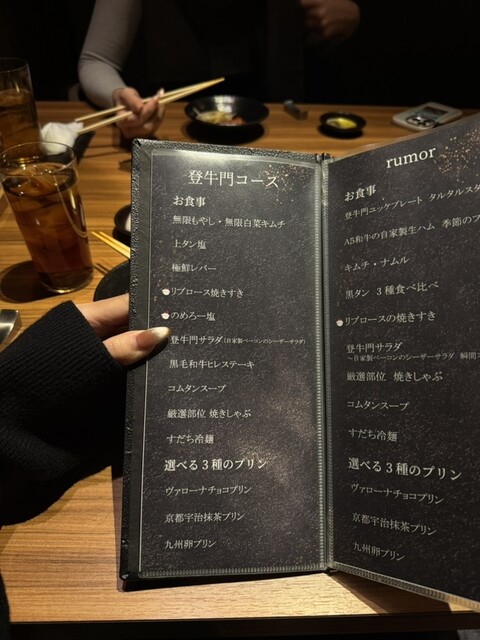 登牛門コース
お食事
無限もやし・無限白菜キムチ
上タン塩
極鮮レバー
リブロース焼きすき
のめろー塩
登牛門サラダ(自家製ベーコンのシーザーサラダ)
黒毛和牛ヒレステーキ
コムタンスープ
厳選部位 焼きしゃぶ
すだち冷麺
選べる3種のプリン
ヴァローナチョコプリン
京都宇治抹茶プリン
九州卵プリン
rumor
お食事
登牛門ユッケプレート タルタルスタ
A5和牛の自家製生ハム 季節のフ
キムチ・ナムル
黒タン 3種食べ比べ
リブロースの焼きすき
登牛門サラダ
~自家製ベーコンのシーザーサラダ 瞬間ス
厳選部位 焼きしゃぶ
コムタンスープ
すだち冷麺
選べる3種のプリン
ヴァローナチョコプリン
京都宇治抹茶プリン
九州卵プリン